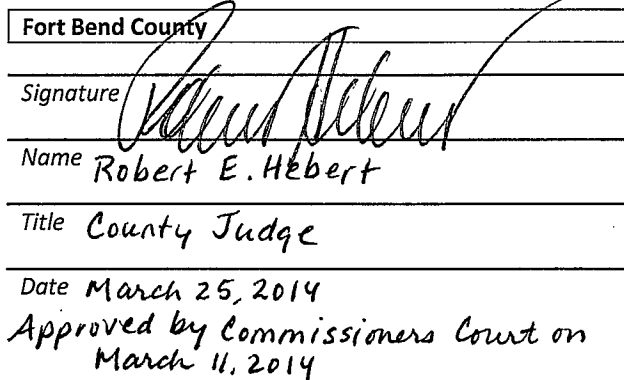 Fort Bend County
Signature
Name Robert E. Hebert
Title County Judge
Date March 25, 2014
Approved by Commissioners Court on
March 11, 2014